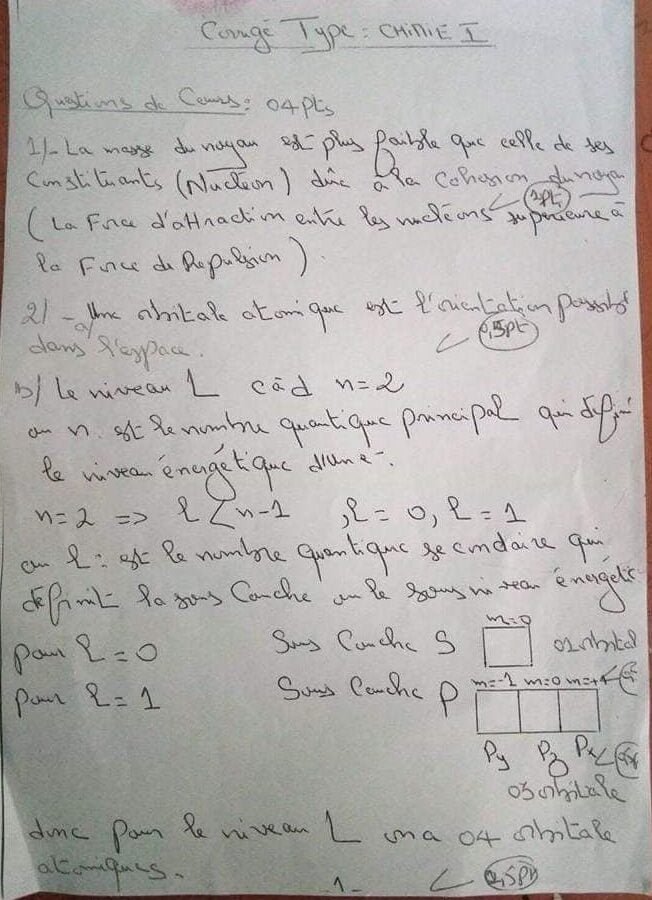 Corrigé Type : CHIMIE I
Questions de Cours : 04 Pts
1/- La masse du noyau est plus faible que celle de ses
Constituants (Nucléon) dûe à la Cohesion du noyau
1pt
(La Force d'attraction entre les nucléons supérieure à
la Force de Repulsion).
2/ - a/ Une orbitale atomique est l'orientation possible
dans l'espace.
0,5pt
b/ Le niveau L càd n=2
ou n. est le nombre quantique principal qui defini
le niveau énergétique d'un e-.
n=2 => l < n-1 , l = 0, l = 1
ou l : est le nombre quantique secondaire qui
définit la sous Couche ou le sous niveau énergétic
m=0
pour l = 0 Sous Couche S 01 orbital
pour l = 1 Sous Couche P m=-1 m=0 m=+1
Py Pz Px
03 orbitale
donc pour le niveau L on a 04 orbitale
atomiques.
0,5pt
-1-